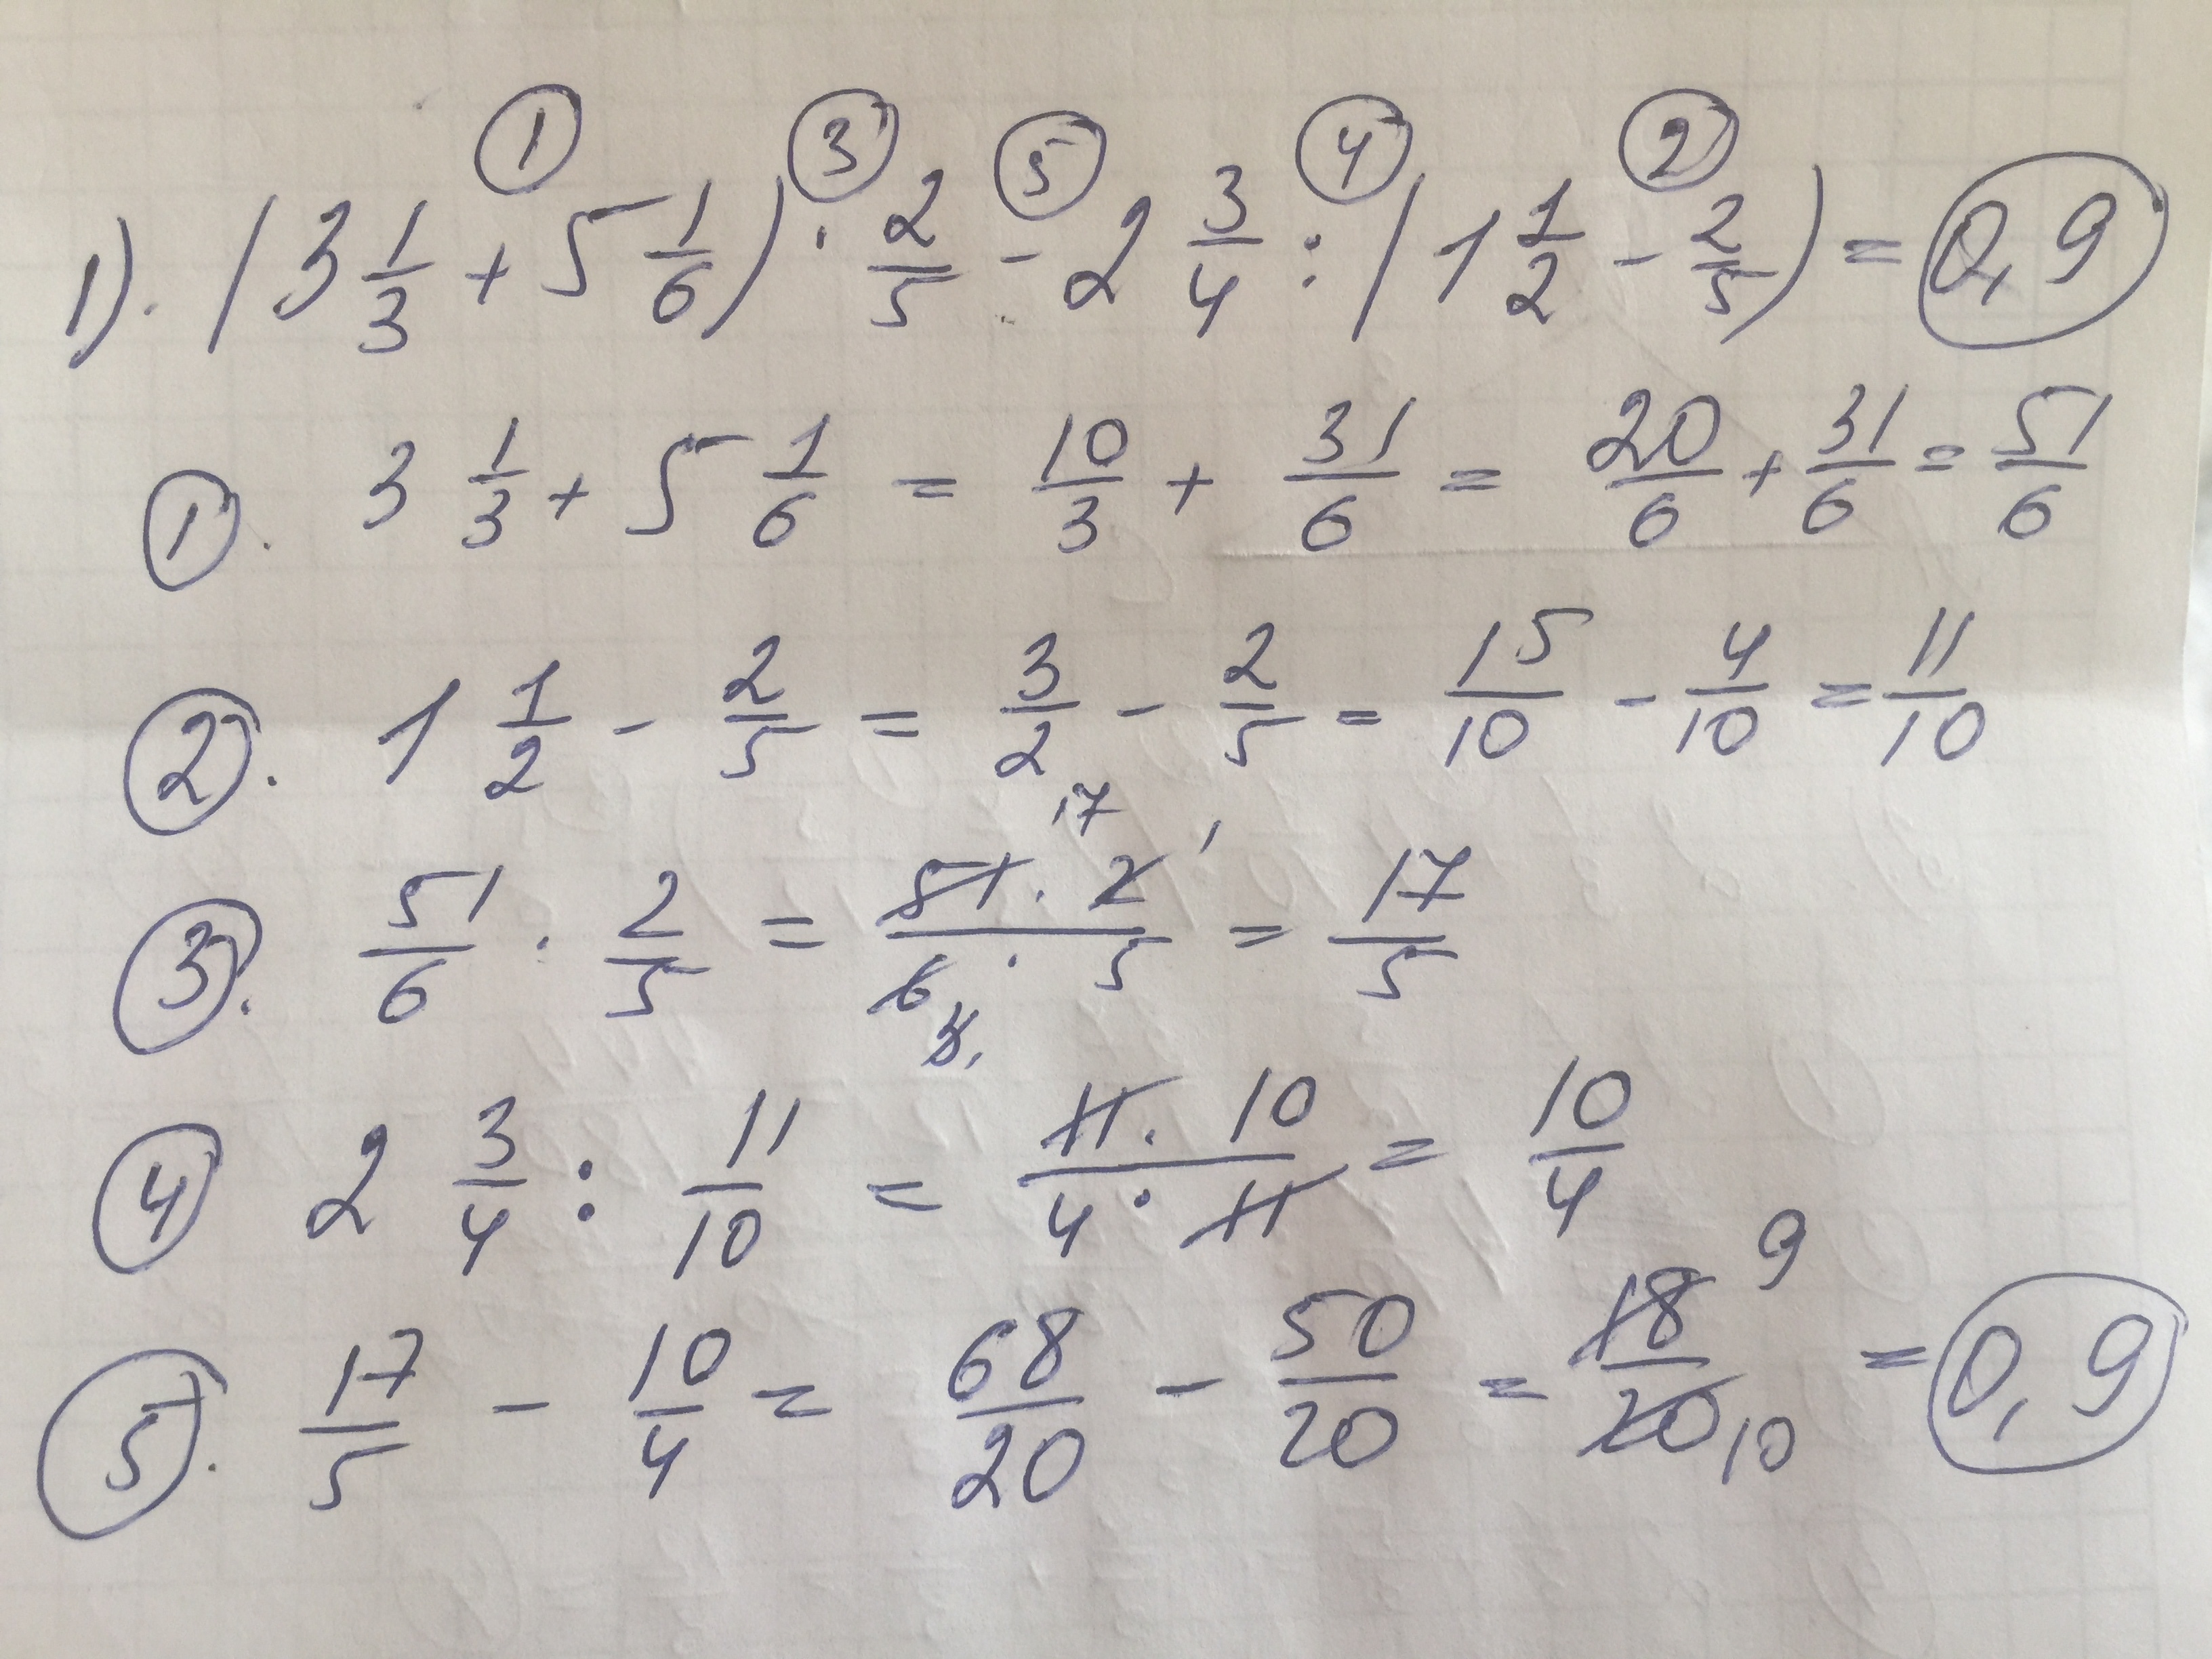 ① ③ ⑤ ④ ②
1). (3 1/3 + 5 1/6) · 2/5 - 2 3/4 : (1 1/2 - 2/5) = 0,9
①. 3 1/3 + 5 1/6 = 10/3 + 31/6 = 20/6 + 31/6 = 51/6
②. 1 1/2 - 2/5 = 3/2 - 2/5 = 15/10 - 4/10 = 11/10
17 1
③. 51/6 · 2/5 = 51 · 2/6 · 5 = 17/5
3 1
④ 2 3/4 : 11/10 = 11 · 10/4 · 11 = 10/4
⑤. 17/5 - 10/4 = 68/20 - 50/20 = 18 9/20 10 = 0,9